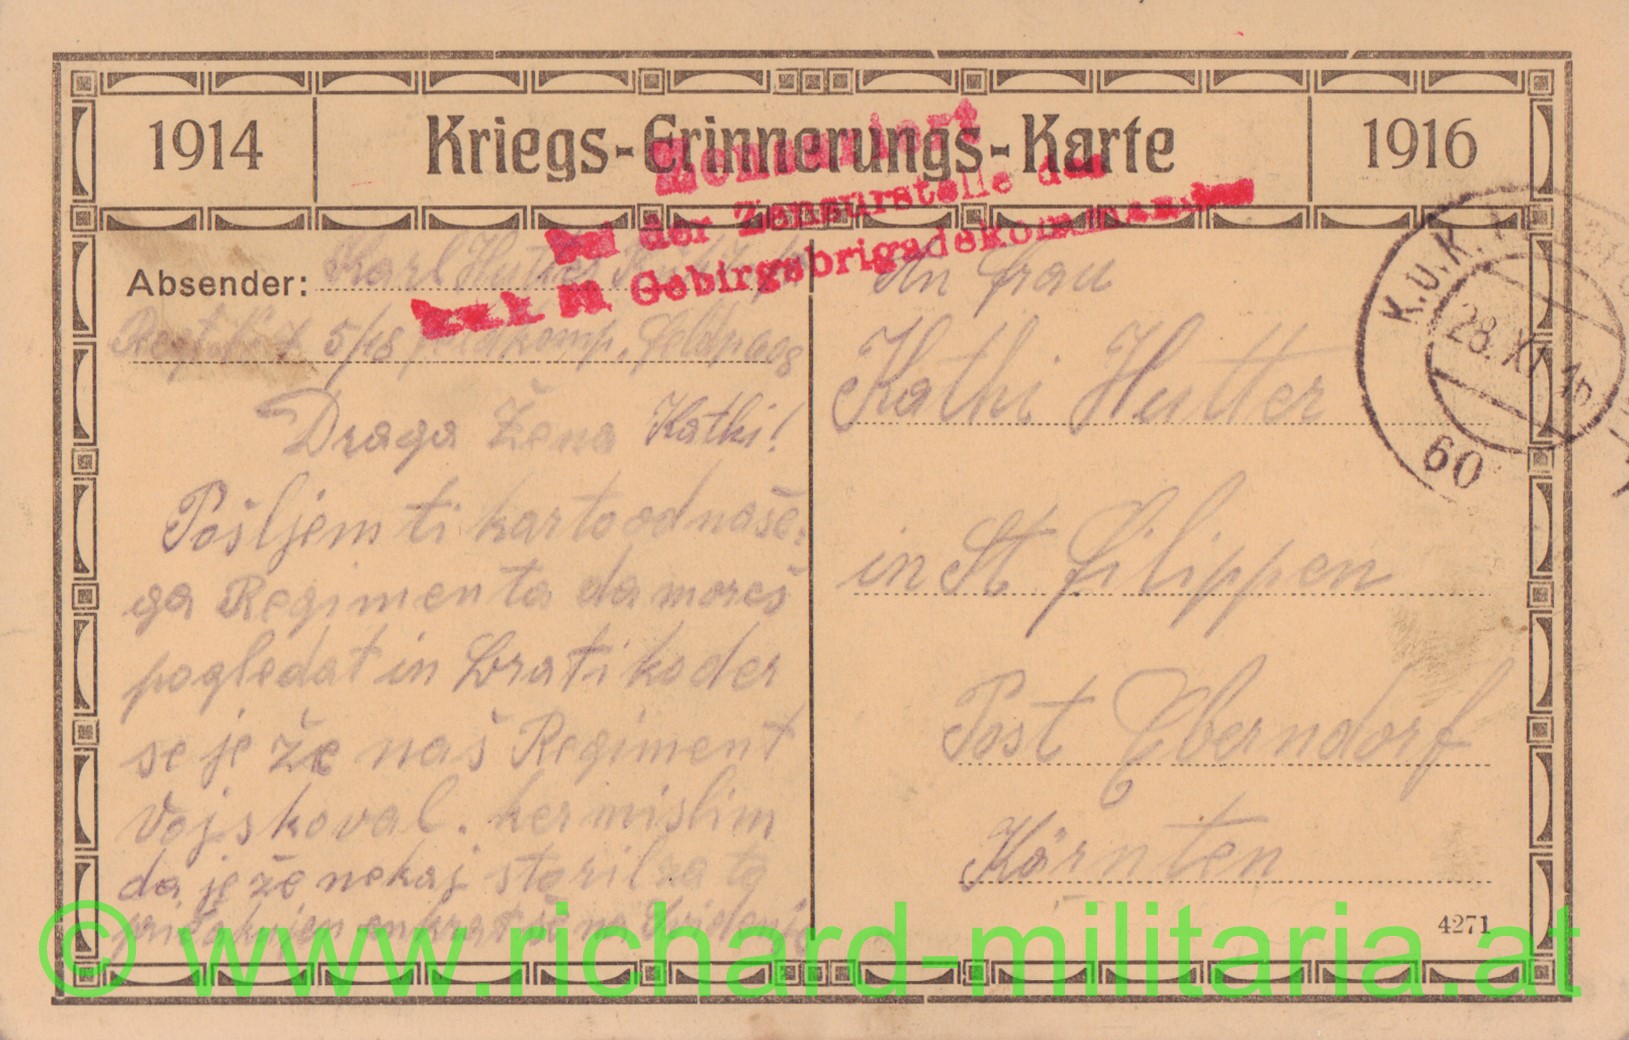 1914 Kriegs-Erinnerungs-Karte 1916
Zensuriert
bei der Zensurstelle des
k.u.k. Gebirgsbrigadekommandos
K.u.K.
28.XI.16
60
Absender: Karl Hutter
5/18 Feldkomp.
Draga Žena Kathi!
Pošljem ti karto od naše-
ga Regimenta da moreš
pogledat in brati koder
se je že naš Regiment
Vojskoval. ker mislim
da je že nekaj storil za to
An Frau
Kathi Hutter
in St Filippen
Post Eberndorf
Kärnten
4271
© www.richard-militaria.at